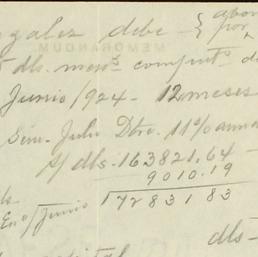 debe { abon
por
MEMORANDUM
dls. mens. comput. d
Junio/924 - 12 meses
Sem. Julio Dbre. 11% anua
s/ dls. 163821.64
9010.19
Eno/Junio 172831 83
dls-